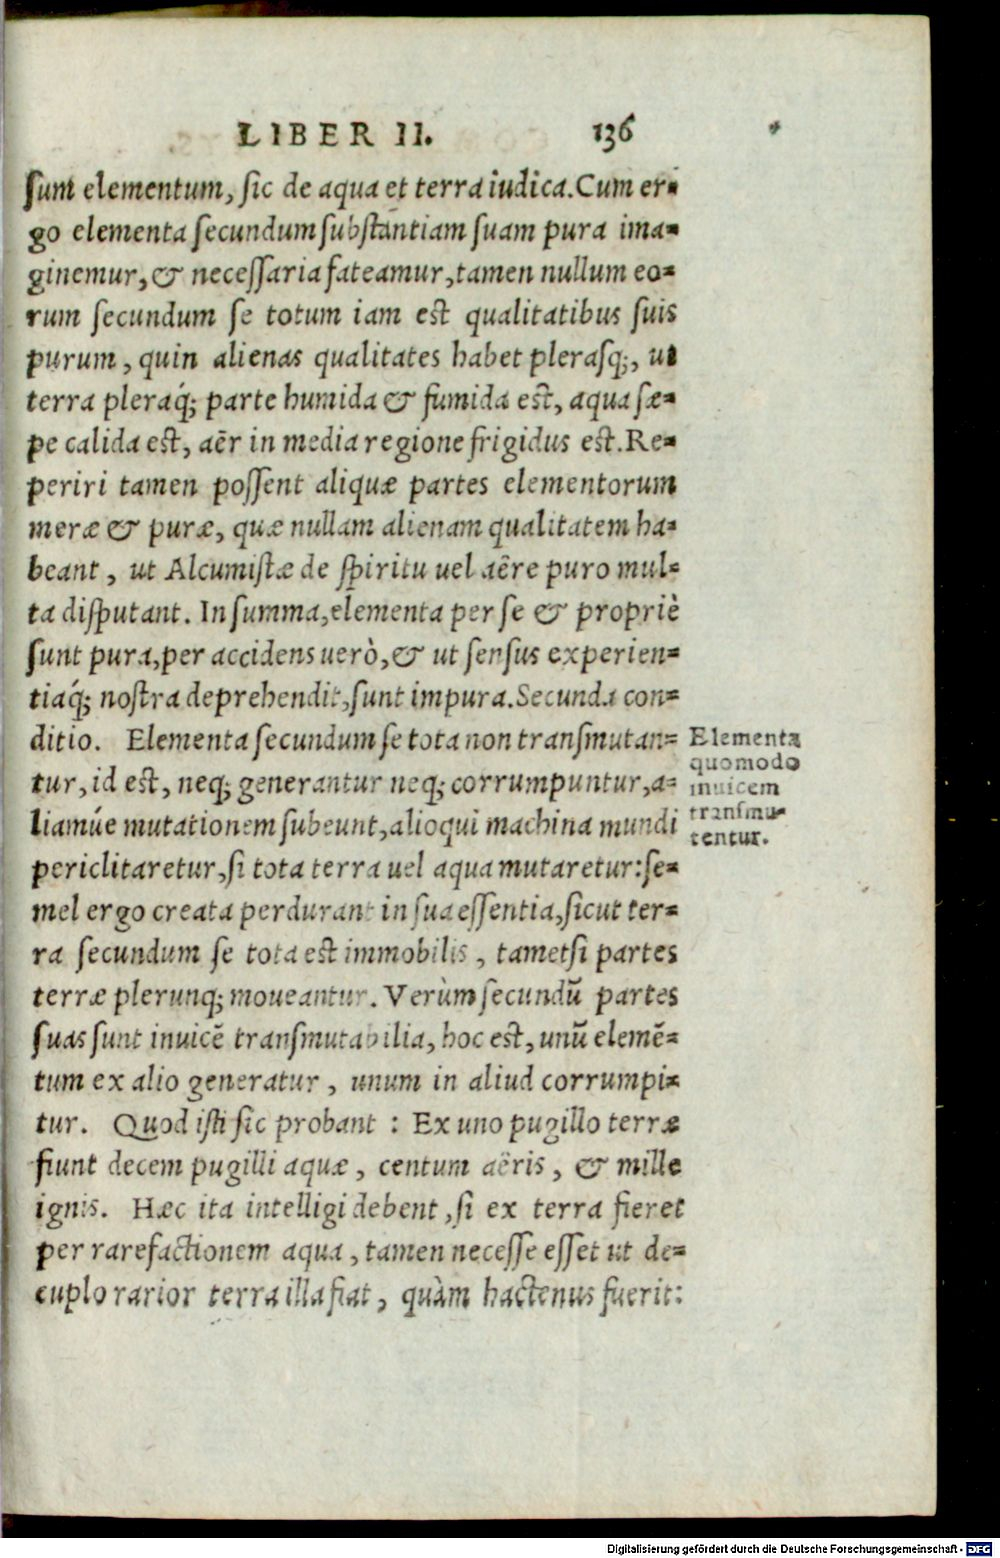 LIBER II. 136
sunt elementum, sic de aqua et terra iudica. Cum er-
go elementa secundum substantiam suam pura ima-
ginemur, & necessaria fateamur, tamen nullum eo-
rum secundum se totum iam est qualitatibus suis
purum, quin alienas qualitates habet plerasq;, ut
terra pleraq́; parte humida & fumida est, aqua sæ-
pe calida est, aër in media regione frigidus est. Re-
periri tamen possent aliquæ partes elementorum
meræ & puræ, quæ nullam alienam qualitatem ha-
beant, ut Alcumistæ de spiritu uel aëre puro mul-
ta disputant. In summa, elementa per se & propriè
sunt pura, per accidens uerò, & ut sensus experien-
tiaq́; nostra deprehendit, sunt impura. Secunda con-
ditio. Elementa secundum se tota non transmutan-
tur, id est, neq; generantur neq; corrumpuntur, a-
liamúe mutationem subeunt, alioqui machina mundi
periclitaretur, si tota terra uel aqua mutaretur: se-
mel ergo creata perdurant in sua essentia, sicut ter-
ra secundum se tota est immobilis, tametsi partes
terræ plerunq; moueantur. Verùm secundũ partes
suas sunt inuicẽ transmutabilia, hoc est, unũ elemẽ-
tum ex alio generatur, unum in aliud corrumpi-
tur. Quod isti sic probant: Ex uno pugillo terræ
fiunt decem pugilli aquæ, centum aëris, & mille
ignis. Hæc ita intelligi debent, si ex terra fieret
per rarefactionem aqua, tamen necesse esset ut de-
cuplo rarior terra illa fiat, quàm hactenus fuerit:
Elementa
quomodo
inuicem
transmu-
tentur.
Digitalisierung gefördert durch die Deutsche Forschungsgemeinschaft - DFG